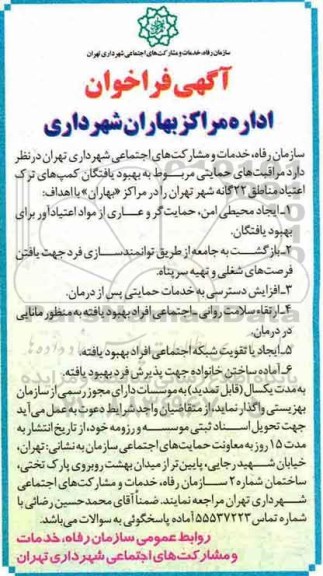 سازمان رفاه، خدمات و مشارکت‌های اجتماعی شهرداری تهران
آگهی فراخوان
اداره مراکز بهاران شهرداری
سازمان رفاه، خدمات و مشارکت‌های اجتماعی شهرداری تهران در نظر
دارد مراقبت‌های حمایتی مربوط به بهبود یافتگان کمپ‌های ترک
اعتیاد مناطق ۲۲گانه شهر تهران را در مراکز «بهاران» با اهداف:
۱ـ ایجاد محیطی امن، حمایت‌گر و عاری از مواد اعتیادآور برای
بهبود یافتگان.
۲ـ بازگشت به جامعه از طریق توانمندسازی فرد جهت یافتن
فرصت‌های شغلی و تهیه سرپناه.
۳ـ افزایش دسترسی به خدمات حمایتی پس از درمان.
۴ـ ارتقاء سلامت روانی ـ اجتماعی افراد بهبود یافته به منظور مانایی
در درمان.
۵ـ ایجاد یا تقویت شبکه اجتماعی افراد بهبود یافته.
۶ـ آماده ساختن خانواده جهت پذیرش فرد بهبود یافته.
به مدت یکسال (قابل تمدید) به موسسات دارای مجوز رسمی از سازمان
بهزیستی واگذار نماید، از متقاضیان واجد شرایط دعوت به عمل می‌آید
جهت تحویل اسناد ثبتی موسسه و رزومه خود، از تاریخ انتشار به
مدت ۱۵ روز به معاونت حمایت‌های اجتماعی سازمان به نشانی: تهران،
خیابان شهید رجایی، پایین‌تر از میدان بهشت روبروی پارک تختی،
ساختمان شماره ۲ سازمان رفاه، خدمات و مشارکت‌های اجتماعی
شهرداری تهران مراجعه نمایند. ضمناً آقای محمدحسین رضائی با
شماره تماس ۵۵۵۳۷۲۲۳ آماده پاسخگوئی به سوالات می‌باشد.
روابط عمومی سازمان رفاه، خدمات
و مشارکت‌های اجتماعی شهرداری تهران